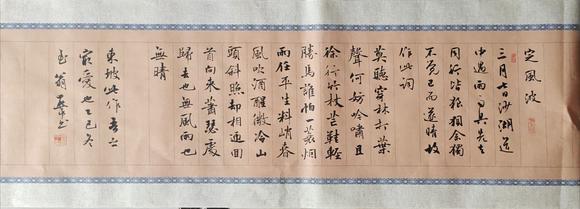 定風波
三月七日沙湖道
中遇雨雨具先去
同行皆狼狽余獨
不覺已而遂晴故
作此詞
莫聽穿林打葉
聲何妨吟嘯且
徐行竹杖芒鞋輕
勝馬誰怕一蓑烟
雨任平生料峭春
風吹酒醒微冷山
頭斜照却相迎回
首向來蕭瑟處
歸去也無風雨也
無晴
東坡此作吾
最愛也乙巳冬
翁